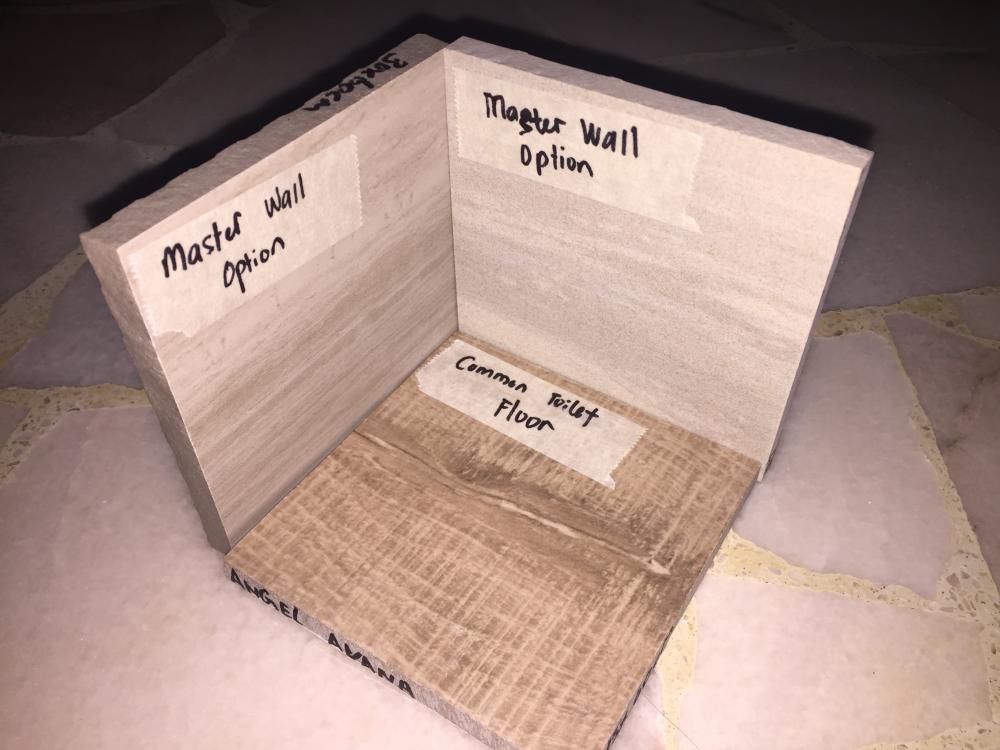 30x60cm
Master Wall
Option
Master Wall
Option
Common Toilet
Floor
ANGEL ADANA